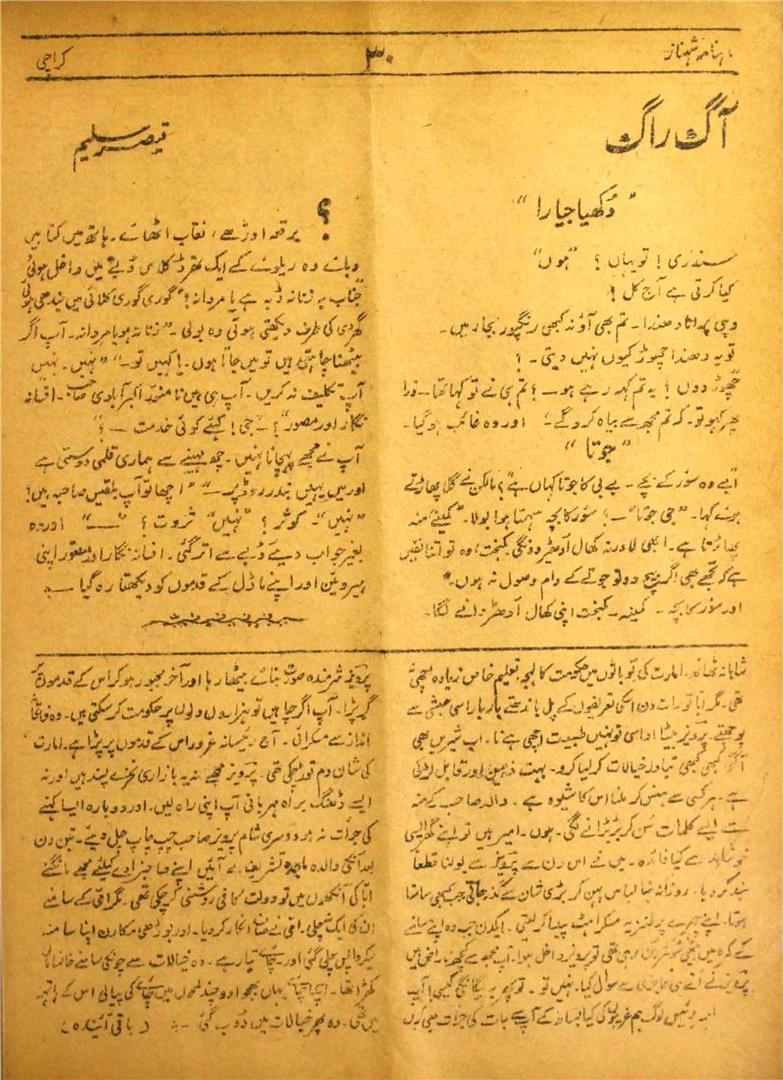 ماہنامہ شہناز
۳۰
کراچی
آگ راگ
قیصر سلیم
"دُکھیا جیارا"
سندری! تو یہاں؟ "ہوں"
کیا کرتی ہے آج کل؟
وہی پرانا دھندا۔ تم بھی آؤ نہ کبھی رنگپور بجار میں۔
تو یہ دھندا چھوڑ کیوں نہیں دیتی۔ ؟
چھوڑ دوں؟ یہ تم کہہ رہے ہو۔ ؟ تم ہی نے تو کہا تھا۔ ذرا
پھر کہو تو۔ کہ تم مجھ سے بیاہ کرو گے؟ اور وہ غائب ہو گیا۔
"جوتا"
ابے وہ سؤر کے بچے۔ بے بی کا جوتا کہاں ہے؟ مالکن نے گلا پھاڑتے
ہوئے کہا۔ "جی جوتا"۔! سؤر کا بچہ سہمتا ہوا بولا۔ "کمینے منہ
پھاڑتا ہے۔ ابھی لا ورنہ کھال اُدھیڑ دونگی۔ کمبخت، وہ تو اتنا
ہے کہ تجھے بھی اگر بیچ دو تو جوتے کے دام وصول نہ ہوں۔"
اور سؤر کا بچہ۔ کمینہ۔ کمبخت اپنی کھال اُدھڑوانے لگا۔
؟
برقعہ اوڑھے، نقاب اٹھائے۔ ہاتھ میں کتابیں
دبائے وہ ریلوے کے ایک تھرڈ کلاس ڈبے میں داخل ہوئی
"جناب یہ زنانہ ڈبہ ہے یا مردانہ؟" گوری گوری کلائی میں بندھی ہوئی
گھڑی کی طرف دیکھتی ہوئی وہ بولی۔ "زنانہ ہو یا مردانہ۔ آپ اگر
بیٹھنا چاہتی ہیں تو میں جاتا ہوں۔ یا کہیں تو۔" "نہیں۔ نہیں
آپ تکلیف نہ کریں۔ آپ ہی ہیں نا اکبر آبادی صاحب۔ افسانہ
نگار اور مصور"؟ ۔ جی! کہئے کوئی خدمت ۔؟
آپ نے مجھے پہچانا نہیں۔ چھ مہینے سے ہماری قلمی دوستی ہے
اور میں یہیں بندر روڈ پر۔" "اچھا تو آپ بلقیس صاحبہ ہیں!
"نہیں"۔ کوثر؟ "نہیں" ثروت؟ "۔" اور وہ
بغیر جواب دیئے ڈبے سے اتر گئی۔ افسانہ نگار اور مصور اپنی
ہیروئین اور اپنے ماڈل کے قدموں کو دیکھتا رہ گیا۔
شاہانہ ٹھاٹھ۔ امارت کی تو باتوں میں حکومت کا لہجہ تعلیم خاص زیادہ
تھی۔ مگر ابا تو رات دن اسکی تعریفوں کے پل باندھتے بار بار اسی سے
پوچھتے۔ پرویز بیٹا اداسی تو نہیں طبیعت اچھی ہے نا۔ اب شیریں بھی
کبھی کبھی تبادلۂ خیالات کر لیا کرو۔ بہت ذہین اور قابل لڑکی
ہے۔ ہر کسی سے ہنس کر ملنا اس کا شیوہ ہے۔ والد صاحب کے منہ
سے ایسے کلمات سُن کر بڑبڑانے لگی۔ ہوں۔ امیر ہیں تو اپنے گھر ایسی
خوشامد سے کیا فائدہ۔ میں نے اس دن سے پرویز سے بولنا قطعاً
بند کر دیا۔ روزانہ نیا لباس پہن کر بڑی شان سے گذر جاتی جب کبھی سامنا
ہوتا۔ اپنے چہرے پر طنزیہ مسکراہٹ پیدا کر لیتی۔ ایکدن جب وہ اپنے سامنے
کے کمرہ میں رہی تھی تو پرویز داخل ہوا۔ آپ مجھ سے کچھ ناراض ہیں
پرویز نے آتے ہی سوال کیا۔ نہیں تو۔ تو پھر یہ بیگانگی کیسی؟ آپ
رئیس لوگ ہم غریبوں کی کیا بساط کے آپ سے بات کی جرات بھی کریں
پرویز شرمندہ صورت بنائے بیٹھا رہا اور آخر مجبور ہو کر اس کے قدموں
گر پڑا۔ آپ اگر چاہیں تو ہزاروں دلوں پر حکومت کر سکتی ہیں۔ وہ فاتحانہ
انداز سے مسکرائی۔ آج رئیسانہ غرور اس کے قدموں پر پڑا ہے۔ امارت
کی شان دم توڑ چکی تھی۔ پرویز مجھے نہ یہ بازاری نخرے پسند ہیں اور نہ
ایسے ڈھنگ براہ مہربانی آپ اپنی راہ لیں۔ اور دوبارہ ایسا کہنے
کی جرات نہ ہو دوسری شام پرویز صاحب چپ چاپ چل دیئے۔ تین دن
بعد انکی والدہ ماجدہ تشریف لے آئیں اپنے صاحبزادے کیلئے مجھے مانگنے
ابا کی آنکھوں میں تو دولت کافی روشنی کر چکی تھی۔ مگر امی کے سامنے
ان کی ایک نہ چلی۔ امی نے صاف انکار کر دیا۔ اور بوڑھی مکارن اپنا سا منہ
لیکر واپس چلی گئی اور چائے تیار ہے۔ وہ خیالات سے چونکی سامنے خانساماں
کھڑا تھا۔ اچھا چائے یہاں بھجوا دو چند لمحوں میں چائے کی پیالی اس کے ہاتھ
میں تھی۔ وہ پھر خیالات میں ڈوب گئی۔ (باقی آئندہ)